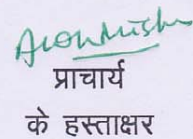 प्राचार्य
के हस्ताक्षर